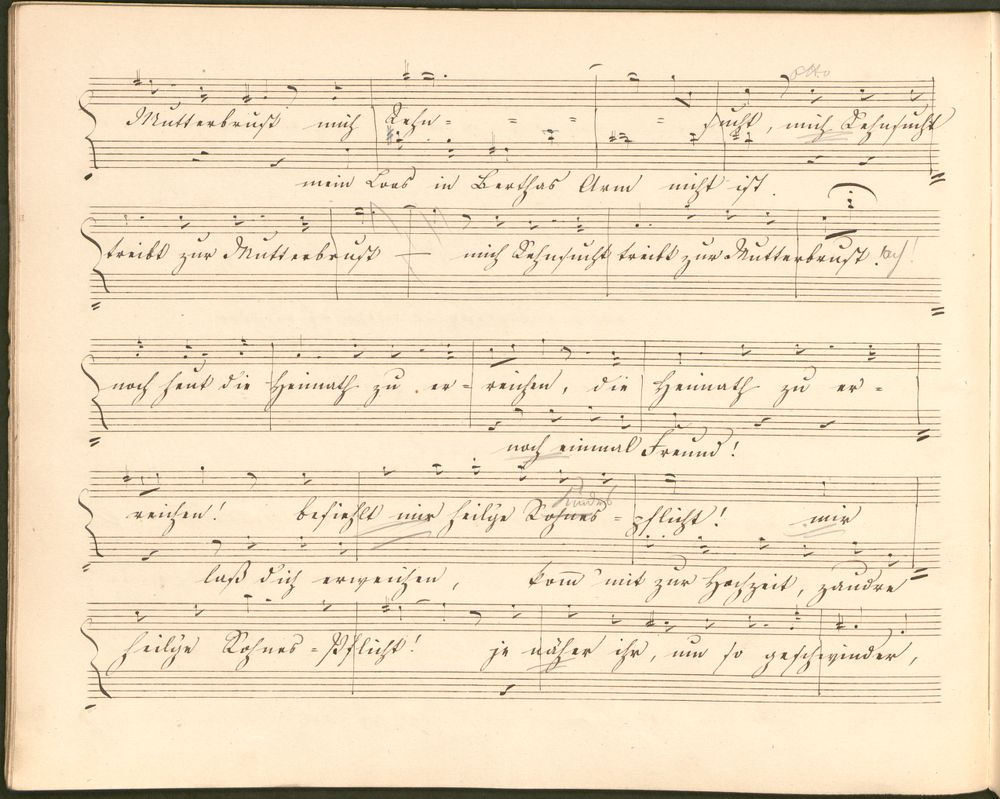 Otto
Mutterbrust mich Sehn- - - - - sucht, mich Sehnsucht
mein Loos in Berthas Arm nicht ist.
treibt zur Mutterbrust — mich Sehnsucht treibt zur Mutterbrust!
noch heut die Heimath zu er- reichen, die Heimath zu er-
noch einmal Freund!
Kindes
reichen! befiehlt mir heilge Sohnes- pflicht! mir
laß dich erweichen, kom̄ mit zur Hochzeit, zaudre
heilge Sohnes-Pflicht! je näher ihr, um so geschwinder,